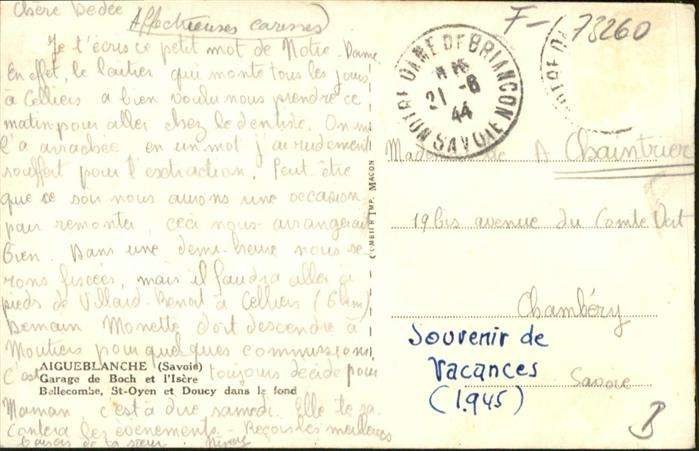 Chère Dédée
Affectueuses caresses
Je t'écris ce petit mot de Notre Dame
En effet, le laitier qui monte tous les jours
à Celliers a bien voulu nous prendre ce
matin pour aller chez le dentiste. On me
l'a arrachée en un mot j'ai rudement
souffert pour l'extraction. Peut être
que ce soir nous aurons une occasion
pour remonter, ceci nous arrangerait
bien. Dans une demi-heure nous se-
rons fixées, mais il faudra aller à
pieds de Villard-Benoit à Celliers (6km)
Demain Monette doit descendre à
Moutiers pour quelques commissions
c'est toujours décidé pour
Maman c'est à dire samedi. Elle te ra-
contera les évènements - Reçois les meilleurs
baisers de ta sœur
AIGUEBLANCHE (Savoie)
Garage de Boch et l'Isère
Bellecombe, St-Oyen et Doucy dans le fond
COMBIER IMP. MACON
F-(73260
NOTRE DAME DE BRIANCON
21 -6
44
SAVOIE
NOTRE DA
Mademoiselle A Chaintrier
19 bis avenue du Comte Vert
Chambéry
Savoie
Souvenir de
Vacances
(1945)
B